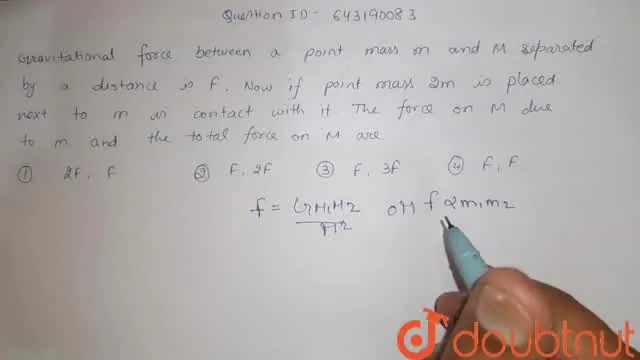 Question ID - 643190083
Gravitational force between a point mass m and M separated
by a distance is F. Now if point mass 2m is placed
next to m in contact with it. The force on M due
to m and the total force on M are
① 2F, F ② F, 2F ③ F, 3F ④ F, F
f = GM1M2 / r2 or f α m1m2
doubtnut